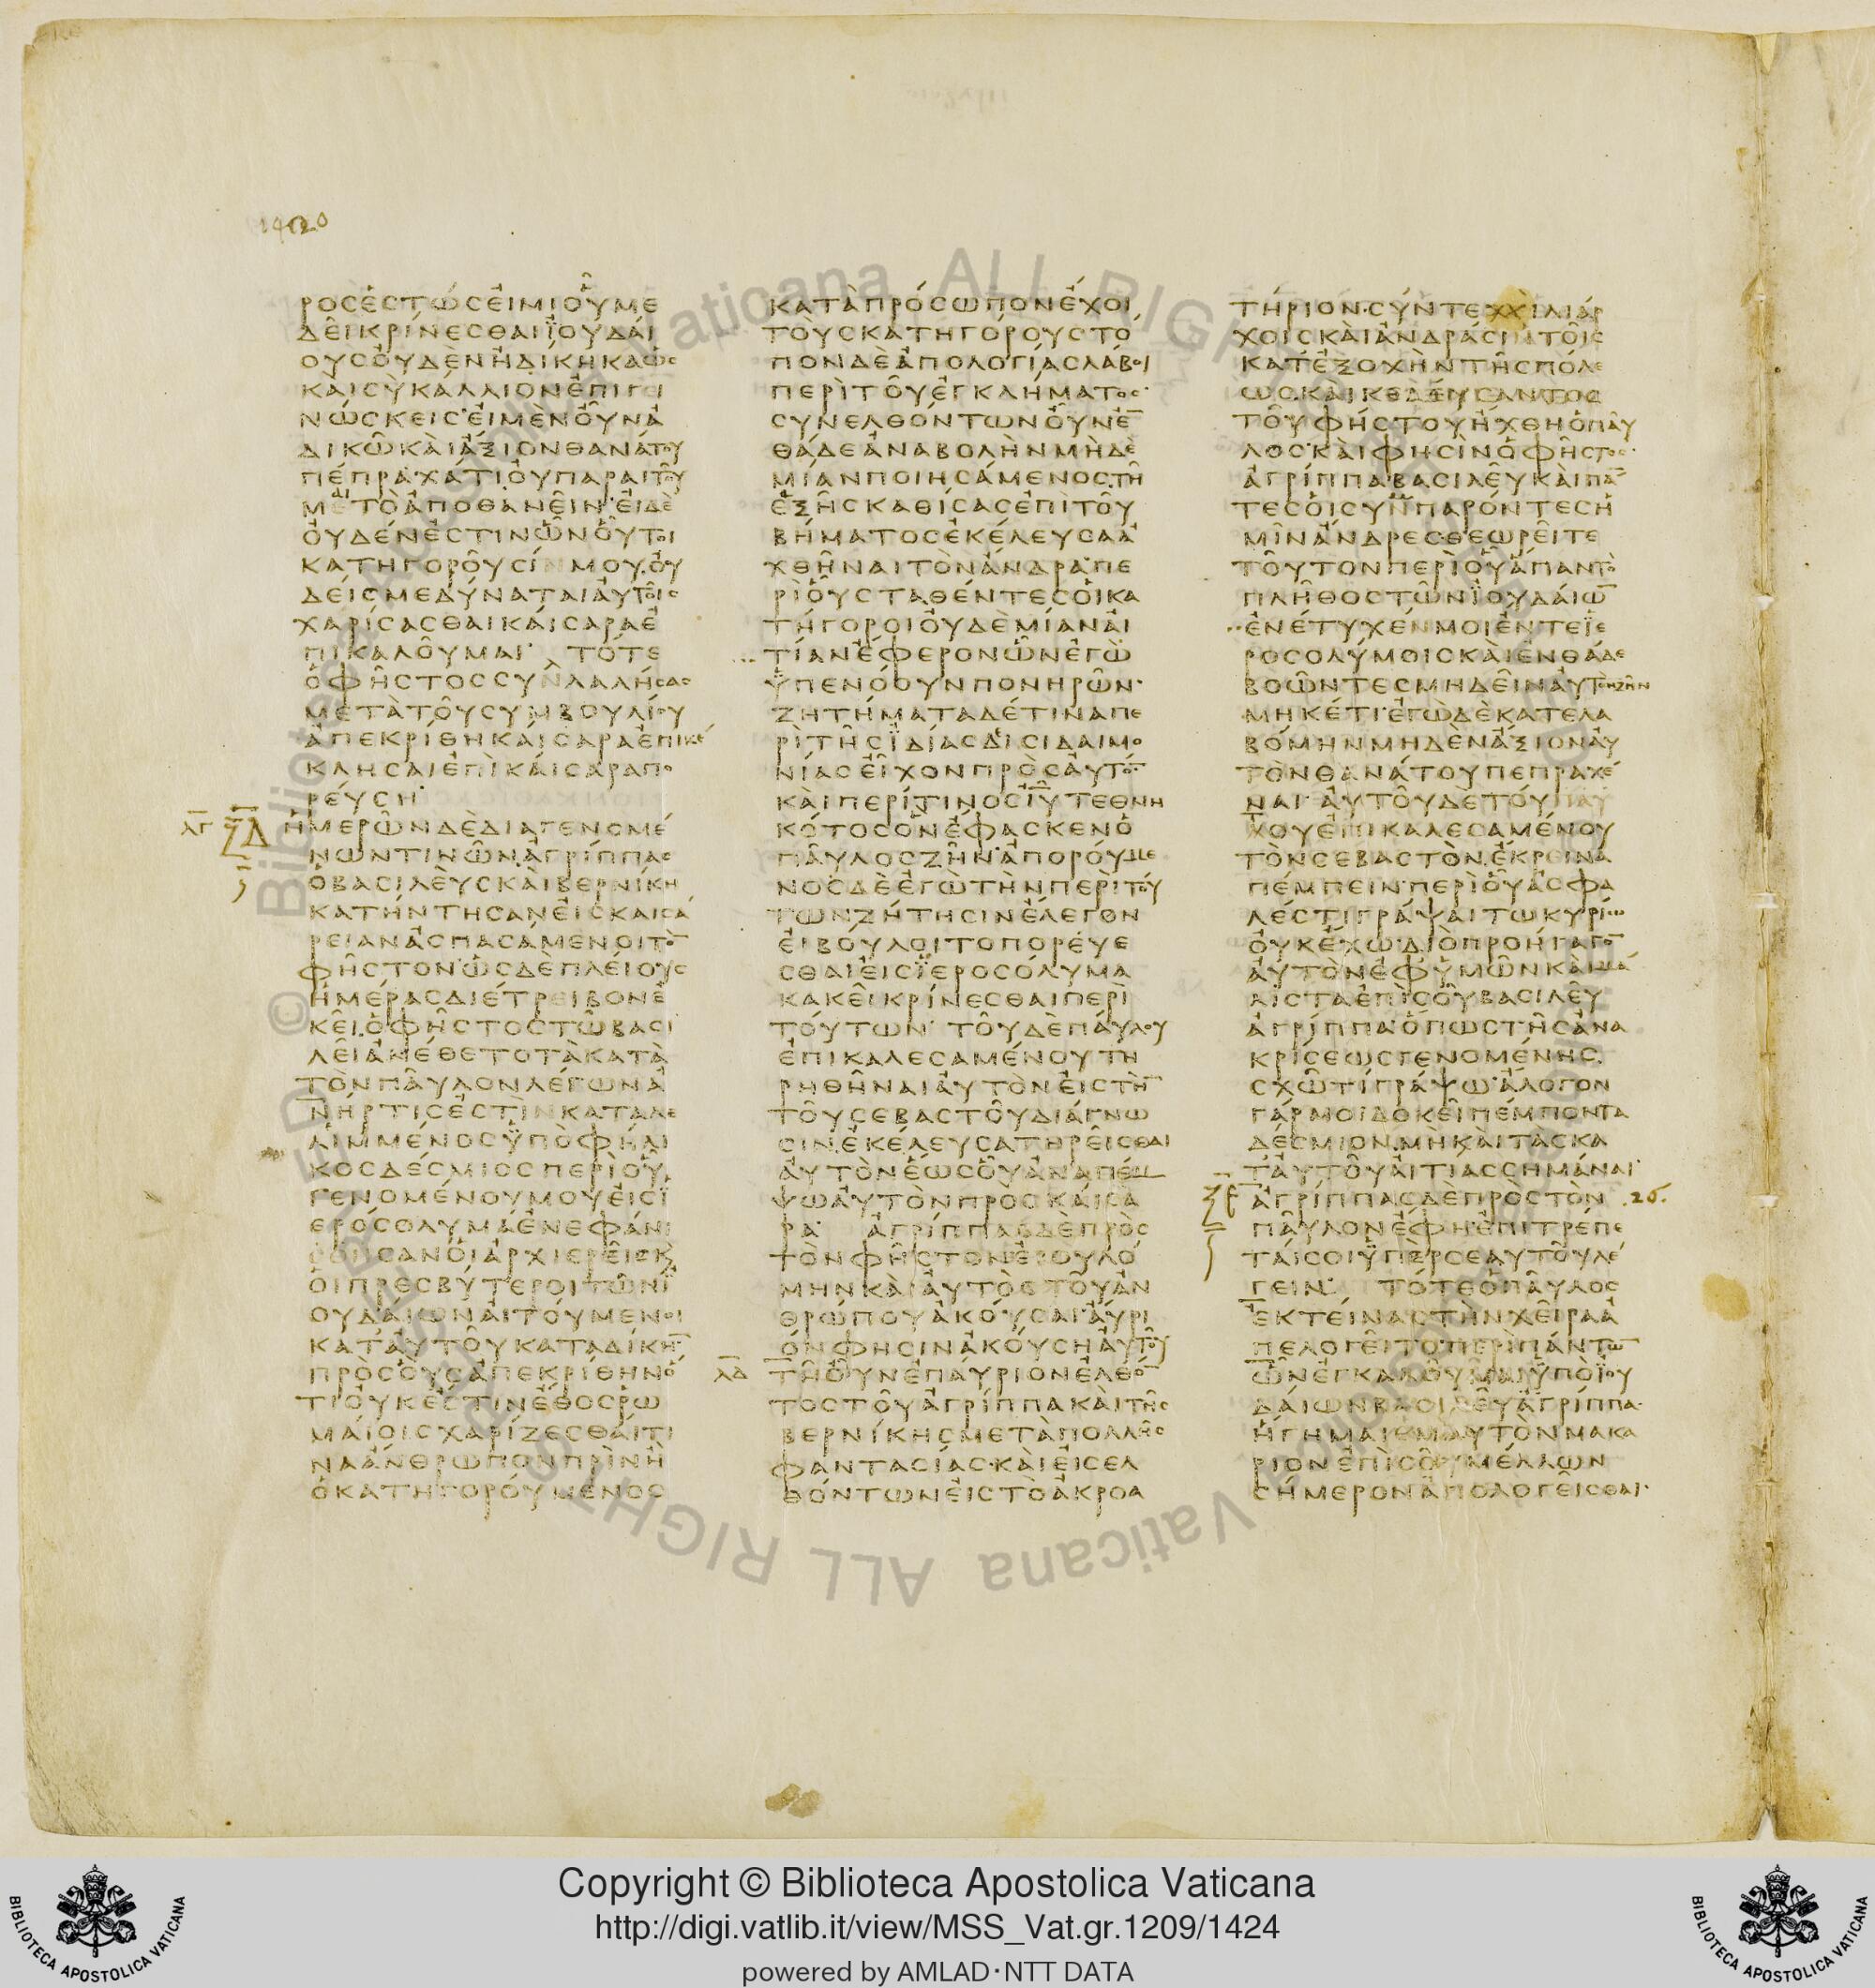 1420
ΡΟCΕCΤΩCΕΙΜΙΟΥΜΕ
ΔΕΙΚΡΙΝΕCΘΑΙΪΟΥΔΑΙ
ΟΥCΟΥΔΕΝΗΔΙΚΗΚΑΩC
ΚΑΙCΥΚΑΛΛΙΟΝΕΠΙΓΕΙ
ΝΩCΚΕΙCΕΙΜΕΝΟΥΝΑ
ΔΙΚΩΚΑΙΑΞΙΟΝΘΑΝΑΤΟΥ
ΠΕΠΡΑΧΑΤΙΟΥΠΑΡΑΙΤΟΥ
ΜΕΤΟΑΠΟΘΑΝΕΙΝΕΙΔΕ
ΟΥΔΕΝΕCΤΙΝΩΝΟΥΤΟΙ
ΚΑΤΗΓΟΡΟΥCΙΝΜΟΥΟΥ
ΔΕΙCΜΕΔΥΝΑΤΑΙΑΥΤΟΙC
ΧΑΡΙCΑCΘΑΙΚΑΙCΑΡΑΕ
ΠΙΚΑΛΟΥΜΑΙ ΤΟΤΕ
ΟΦΗCΤΟCCΥΝΛΑΛΗCΑC
ΜΕΤΑΤΟΥCΥΜΒΟΥΛΙΟΥ
ΑΠΕΚΡΙΘΗΚΑΙCΑΡΑΕΠΙΚΕ
ΚΛΗCΑΙΕΠΙΚΑΙCΑΡΑΠΟ
ΡΕΥCΗ
ΛΓ ΞΔ ΗΜΕΡΩΝΔΕΔΙΑΓΕΝΟΜΕ
ΝΩΝΤΙΝΩΝΑΓΡΙΠΠΑC
ΟΒΑCΙΛΕΥCΚΑΙΒΕΡΝΙΚΗ
ΚΑΤΗΝΤΗCΑΝΕΙCΚΑΙCΑ
ΡΕΙΑΝΑCΠΑCΑΜΕΝΟΙΤΟ̅
ΦΗCΤΟΝΩCΔΕΠΛΕΙΟΥC
ΗΜΕΡΑCΔΙΕΤΡΕΙΒΟΝΕ
ΚΕΙΟΦΗCΤΟCΤΩΒΑCΙ
ΛΕΙΑΝΕΘΕΤΟΤΑΚΑΤΑ
ΤΟΝΠΑΥΛΟΝΛΕΓΩΝΑ
ΝΗΡΤΙCΕCΤΙΝΚΑΤΑΛΕ
ΛΙΜΜΕΝΟCΫΠΟΦΗΛΙ
ΚΟCΔΕCΜΙΟCΠΕΡΙΟΥ
ΓΕΝΟΜΕΝΟΥΜΟΥΕΙCΪ
ΕΡΟCΟΛΥΜΑΕΝΕΦΑΝΙ
CΑΝΟΙΑΡΧΙΕΡΕΙCΚ
ΟΙΠΡΕCΒΥΤΕΡΟΙΤΩΝΪ
ΟΥΔΑΙΩΝΑΙΤΟΥΜΕΝΟΙ
ΚΑΤΑΥΤΟΥΚΑΤΑΔΙΚΗ̅
ΠΡΟCΟΥCΑΠΕΚΡΙΘΗΝΟ
ΤΙΟΥΚΕCΤΙΝΕΘΟCΡΩ
ΜΑΙΟΙCΧΑΡΙΖΕCΘΑΙΤΙ
ΝΑΑΝΘΡΩΠΟΝΠΡΙΝΗ
ΟΚΑΤΗΓΟΡΟΥΜΕΝΟC
ΚΑΤΑΠΡΟCΩΠΟΝΕΧΟΙ
ΤΟΥCΚΑΤΗΓΟΡΟΥCΤΟ
ΠΟΝΔΕΑΠΟΛΟΓΙΑCΛΑΒΟΙ
ΠΕΡΙΤΟΥΕΓΚΛΗΜΑΤΟC
CΥΝΕΛΘΟΝΤΩΝΟΥΝΕ̅
ΘΑΔΕΑΝΑΒΟΛΗΝΜΗΔΕ
ΜΙΑΝΠΟΙΗCΑΜΕΝΟCΤΗ
ΕΞΗCΚΑΘΙCΑCΕΠΙΤΟΥ
ΒΗΜΑΤΟCΕΚΕΛΕΥCΑΑ
ΧΘΗΝΑΙΤΟΝΑΝΔΡΑΠΕ
ΡΙΟΥCΤΑΘΕΝΤΕCΟΙΚΑ
ΤΗΓΟΡΟΙΟΥΔΕΜΙΑΝΑΙ
ΤΙΑΝΕΦΕΡΟΝΩΝΕΓΩ
ΫΠΕΝΟΟΥΝΠΟΝΗΡΩΝ
ΖΗΤΗΜΑΤΑΔΕΤΙΝΑΠΕ
ΡΙΤΗCΪΔΙΑCΔΙCΙΔΑΙΜΟ
ΝΙΑCΕΙΧΟΝΠΡΟCΑΥΤΟ̅
ΚΑΙΠΕΡΙΤΙΝΟCΙ̅Υ̅ΤΕΘΝΗ
ΚΟΤΟCΟΝΕΦΑCΚΕΝΟ
ΠΑΥΛΟCΖΗΝΑΠΟΡΟΥΜΕ
ΝΟCΔΕΕΓΩΤΗΝΠΕΡΙΤΟΥ
ΤΩΝΖΗΤΗCΙΝΕΛΕΓΟΝ
ΕΙΒΟΥΛΟΙΤΟΠΟΡΕΥΕ
CΘΑΙΕΙCΪΕΡΟCΟΛΥΜΑ
ΚΑΚΕΙΚΡΙΝΕCΘΑΙΠΕΡΙ
ΤΟΥΤΩΝ ΤΟΥΔΕΠΑΥΛΟΥ
ΕΠΙΚΑΛΕCΑΜΕΝΟΥΤΗ
ΡΗΘΗΝΑΙΑΥΤΟΝΕΙCΤΗ̅
ΤΟΥCΕΒΑCΤΟΥΔΙΑΓΝΩ
CΙΝΕΚΕΛΕΥCΑΤΗΡΕΙCΘΑΙ
ΑΥΤΟΝΕΩCΟΥΑΝΑΠΕΜ
ΨΩΑΥΤΟΝΠΡΟCΚΑΙCΑ
ΡΑ ΑΓΡΙΠΠΑCΔΕΠΡΟC
ΤΟΝΦΗCΤΟΝΕΒΟΥΛΟ
ΜΗΝΚΑΙΑΥΤΟCΤΟΥΑΝ
ΘΡΩΠΟΥΑΚΟΥCΑΙΑΥΡΙ
ΟΝΦΗCΙΝΑΚΟΥCΗΑΥΤΟΥ
ΛΔ ΤΗΟΥΝΕΠΑΥΡΙΟΝΕΛΘΟ̅
ΤΟCΤΟΥΑΓΡΙΠΠΑΚΑΙΤΗC
ΒΕΡΝΙΚΗCΜΕΤΑΠΟΛΛΗC
ΦΑΝΤΑCΙΑCΚΑΙΕΙCΕΛ
ΘΟΝΤΩΝΕΙCΤΟΑΚΡΟΑ
ΤΗΡΙΟΝCΥΝΤΕΧΙΛΙΑΡ
ΧΟΙCΚΑΙΑΝΔΡΑCΙΝΤΟΙC
ΚΑΤΕΞΟΧΗΝΤΗCΠΟΛΕ
ΩCΚΑΙΚΕΛΕΥCΑΝΤΟC
ΤΟΥΦΗCΤΟΥΗΧΘΗΟΠΑΥ
ΛΟCΚΑΙΦΗCΙΝΟΦΗCΤΟC
ΑΓΡΙΠΠΑΒΑCΙΛΕΥΚΑΙΠΑ̅
ΤΕCΟΙCΥΝΠΑΡΟΝΤΕCΗ
ΜΙΝΑΝΔΡΕCΘΕΩΡΕΙΤΕ
ΤΟΥΤΟΝΠΕΡΙΟΥΑΠΑΝΤΟ
ΠΛΗΘΟCΤΩΝΪΟΥΔΑΙΩ̅
ΕΝΕΤΥΧΕΝΜΟΙΕΝΤΕΪΕ
ΡΟCΟΛΥΜΟΙCΚΑΙΕΝΘΑΔΕ
ΒΟΩΝΤΕCΜΗΔΕΙΝΑΥΤΟΝΖΗΝ
ΜΗΚΕΤΙΕΓΩΔΕΚΑΤΕΛΑ
ΒΟΜΗΝΜΗΔΕΝΑΞΙΟΝΑΥ
ΤΟΝΘΑΝΑΤΟΥΠΕΠΡΑΧΕ
ΝΑΙΑΥΤΟΥΔΕΤΟΥ
ΤΟΥΕΠΙΚΑΛΕCΑΜΕΝΟΥ
ΤΟΝCΕΒΑCΤΟΝΕΚΡΕΙΝΑ
ΠΕΜΠΕΙΝΠΕΡΙΟΥΑCΦΑ
ΛΕCΤΙΓΡΑΨΑΙΤΩΚΥΡΙΩ
ΟΥΚΕΧΩΔΙΟΠΡΟΗΓΑΓΟ̅
ΑΥΤΟΝΕΦΥΜΩΝΚΑΙΜΑ
ΛΙCΤΑΕΠΙCΟΥΒΑCΙΛΕΥ
ΑΓΡΙΠΠΑΟΠΩCΤΗCΑΝΑ
ΚΡΙCΕΩCΓΕΝΟΜΕΝΗC
CΧΩΤΙΓΡΑΨΩΑΛΟΓΟΝ
ΓΑΡΜΟΙΔΟΚΕΙΠΕΜΠΟΝΤΑ
ΔΕCΜΙΟΝΜΗΚΑΙΤΑCΚΑ
ΤΑΥΤΟΥΑΙΤΙΑCCΗΜΑΝΑΙ
ΞΕ ΑΓΡΙΠΠΑCΔΕΠΡΟCΤΟΝ 26.
ΠΑΥΛΟΝΕΦΗΕΠΙΤΡΕΠΕ
ΤΑΙCΟΙΫΠΕΡCΕΑΥΤΟΥΛΕ
ΓΕΙΝ ΤΟΤΕΟΠΑΥΛΟC
ΕΚΤΕΙΝΑCΤΗΝΧΕΙΡΑΑ
ΠΕΛΟΓΕΙΤΟΠΕΡΙΠΑΝΤΩ̅
ΩΝΕΓΚΑΛΟΥΜΑΙΫΠΟΪΟΥ
ΔΑΙΩΝΒΑCΙΛΕΥΑΓΡΙΠΠΑ
ΗΓΗΜΑΙΕΜΑΥΤΟΝΜΑΚΑ
ΡΙΟΝΕΠΙCΟΥΜΕΛΛΩΝ
CΗΜΕΡΟΝΑΠΟΛΟΓΕΙCΘΑΙ
© Biblioteca Apostolica Vaticana ALL RIGHTS
Copyright © Biblioteca Apostolica Vaticana
http://digi.vatlib.it/view/MSS_Vat.gr.1209/1424
powered by AMLAD·NTT DATA
BIBLIOTECA APOSTOLICA VATICANA
BIBLIOTECA APOSTOLICA VATICANA